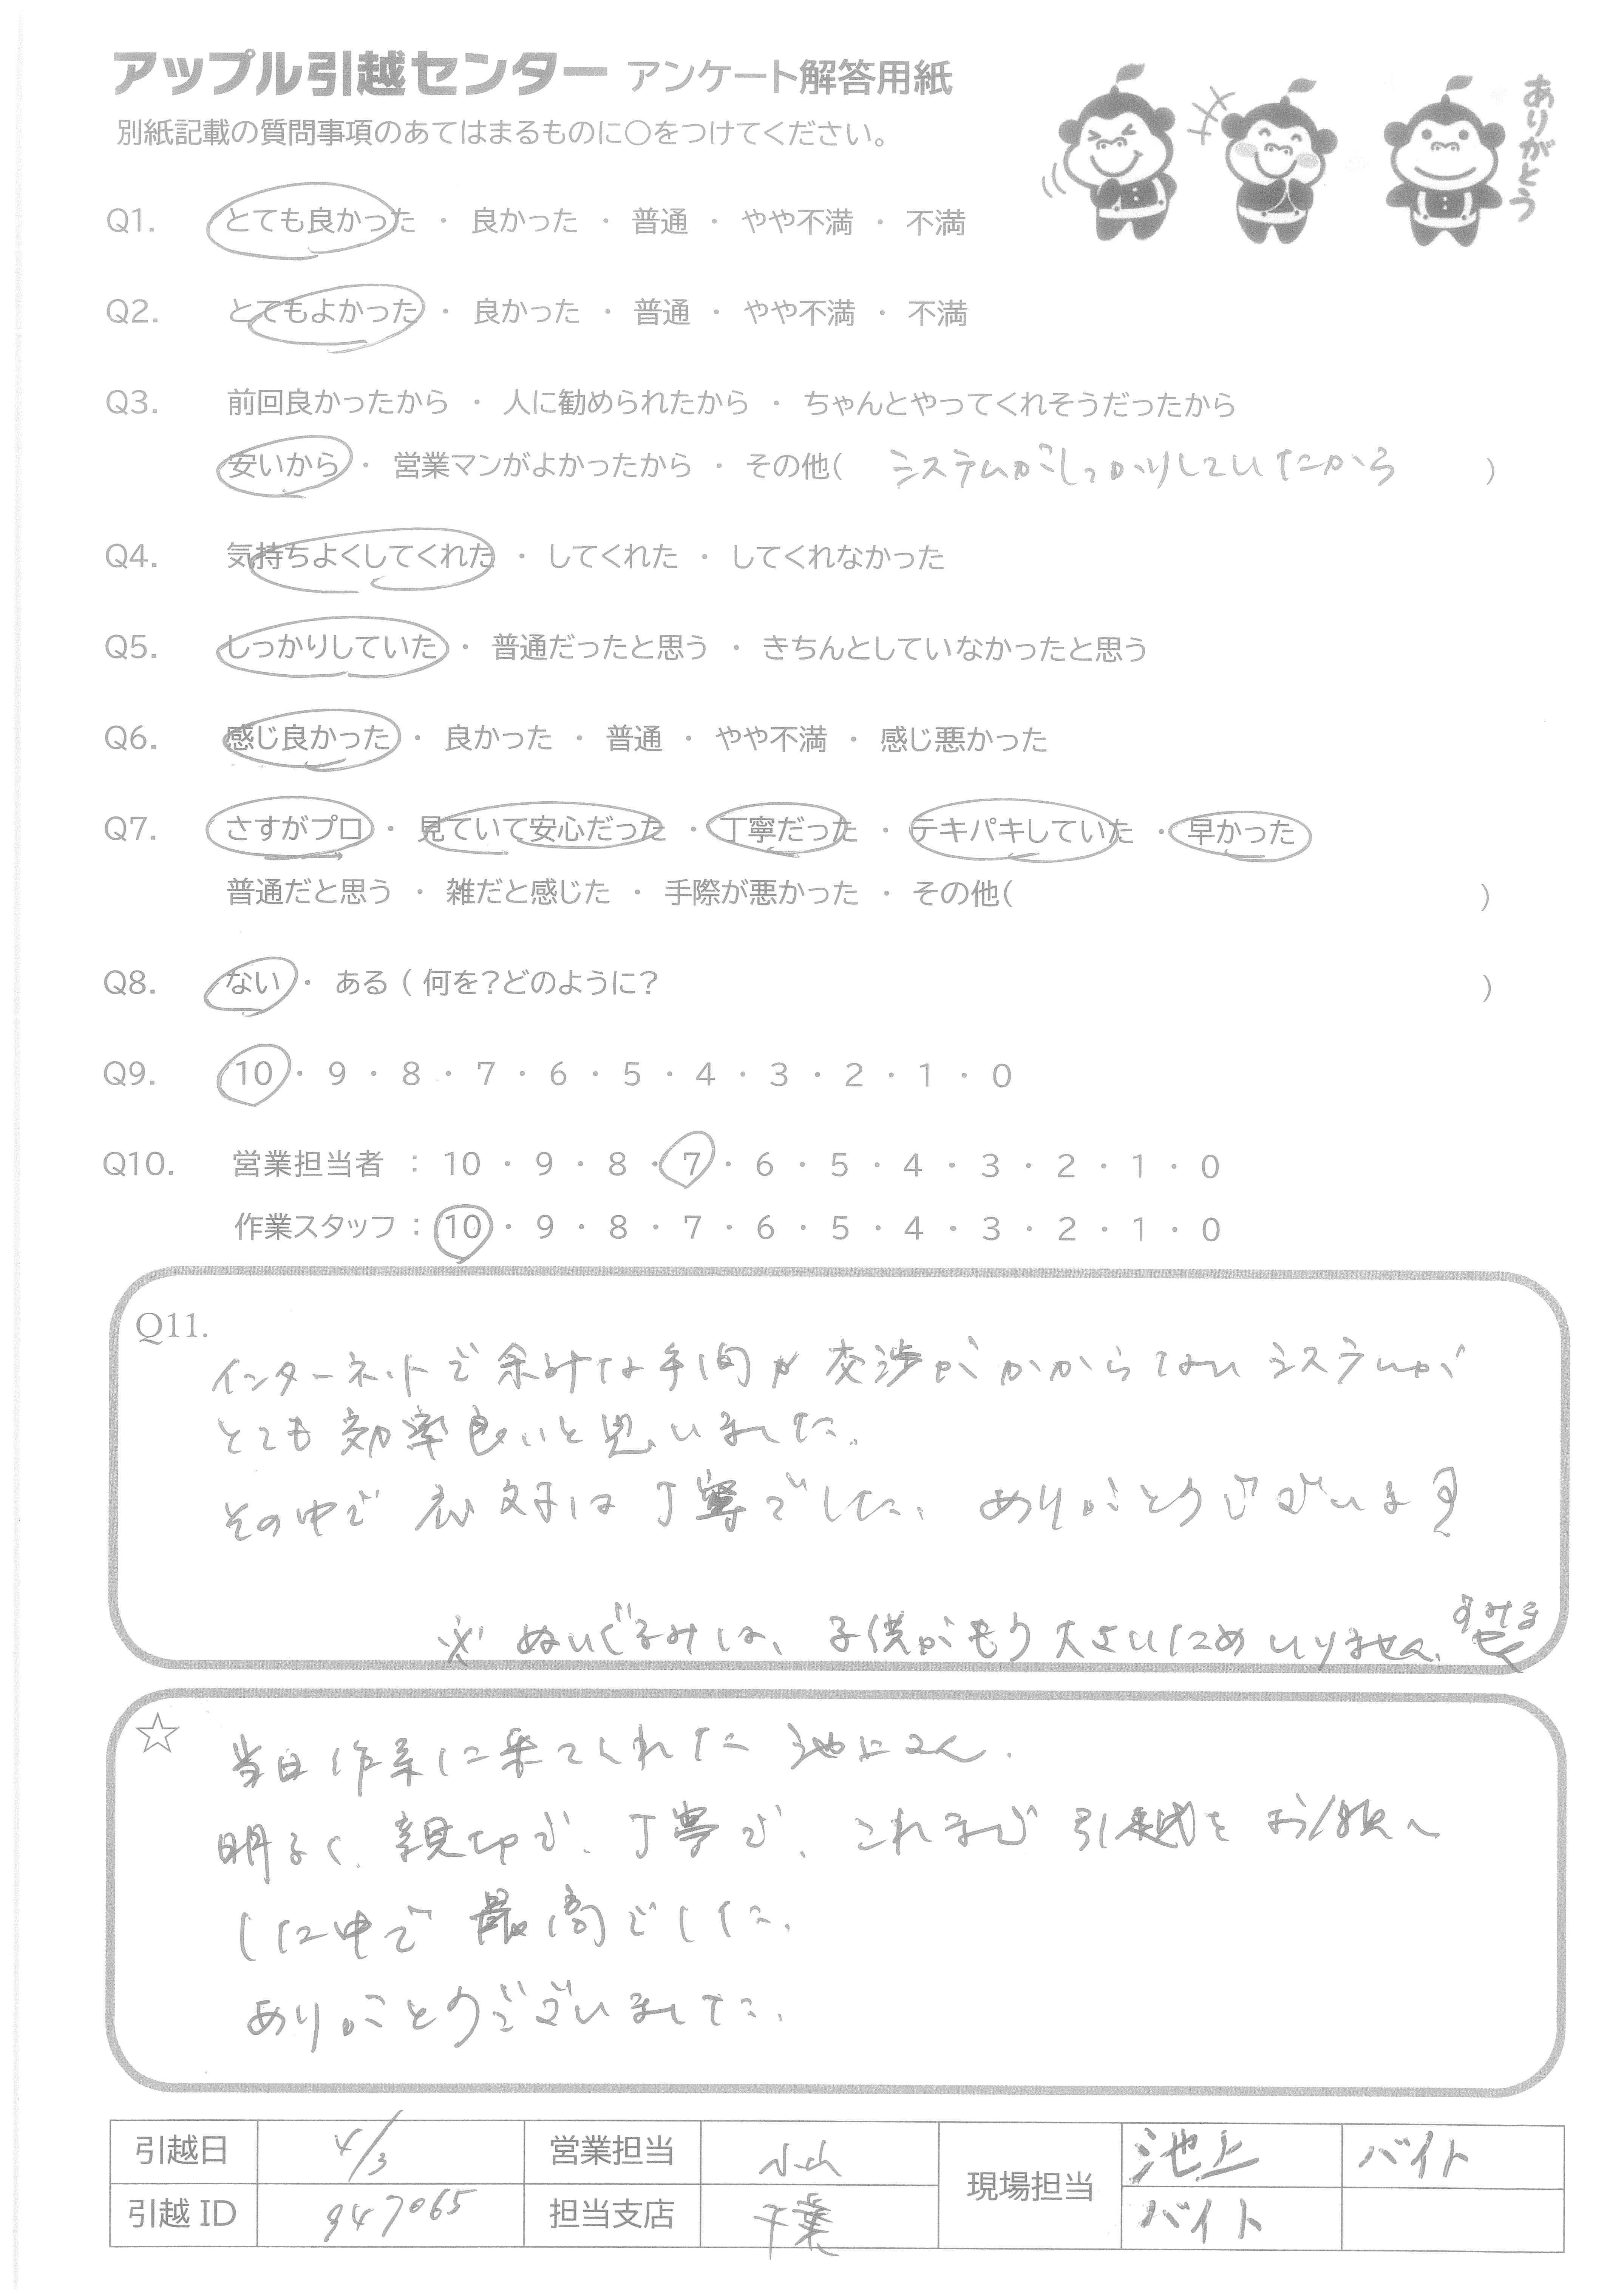 アップル引越センター アンケート解答用紙
ありがとう
別紙記載の質問事項のあてはまるものに〇をつけてください。
Q1. とても良かった ・ 良かった ・ 普通 ・ やや不満 ・ 不満
Q2. とてもよかった ・ 良かった ・ 普通 ・ やや不満 ・ 不満
Q3. 前回良かったから ・ 人に勧められたから ・ ちゃんとやってくれそうだったから
安いから ・ 営業マンがよかったから ・ その他( システムがしっかりしていたから )
Q4. 気持ちよくしてくれた ・ してくれた ・ してくれなかった
Q5. しっかりしていた ・ 普通だったと思う ・ きちんとしていなかったと思う
Q6. 感じ良かった ・ 良かった ・ 普通 ・ やや不満 ・ 感じ悪かった
Q7. さすがプロ ・ 見ていて安心だった ・ 丁寧だった ・ テキパキしていた ・ 早かった
普通だと思う ・ 雑だと感じた ・ 手際が悪かった ・ その他( )
Q8. ない ・ ある ( 何を?どのように? )
Q9. 10 ・ 9 ・ 8 ・ 7 ・ 6 ・ 5 ・ 4 ・ 3 ・ 2 ・ 1 ・ 0
Q10. 営業担当者 : 10 ・ 9 ・ 8 ・ 7 ・ 6 ・ 5 ・ 4 ・ 3 ・ 2 ・ 1 ・ 0
作業スタッフ : 10 ・ 9 ・ 8 ・ 7 ・ 6 ・ 5 ・ 4 ・ 3 ・ 2 ・ 1 ・ 0
Q11.
インターネットで余計な手間や交渉がかからないシステムが
とても効率良いと思いました。
その中で 応対は丁寧でした。ありがとうございます
※ ぬいぐるみは、子供がもう大きいためいりません。すみません
☆ 当日作業に来てくれた 池上さん.
明るく、親切で、丁寧で、これまで引越をお願い
した中で 最高でした。
ありがとうございました。
引越日 4/3 営業担当 小山 現場担当 池上 バイト
引越 ID 947065 担当支店 千葉 バイト